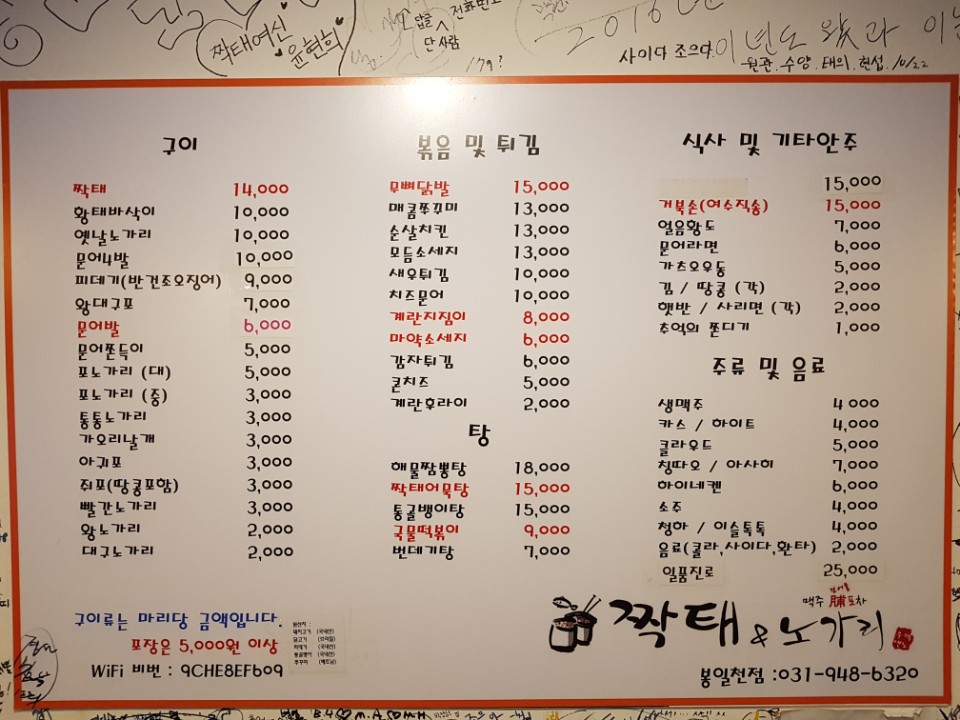 짝태여신
윤현희
답글
전화번호
단 사람
179?
사이다 조으다.
원관. 수양. 태의. 현섭. 10/22
구이
짝태 14,000
황태바삭이 10,000
옛날노가리 10,000
문어4발 10,000
피데기(반건조오징어) 9,000
왕대구포 7,000
문어발 6,000
문어쫀득이 5,000
포노가리 (대) 5,000
포노가리 (중) 3,000
통통노가리 3,000
가오리날개 3,000
아귀포 3,000
쥐포(땅콩포함) 3,000
빨간노가리 3,000
왕노가리 2,000
대구노가리 2,000
구이류는 마리당 금액입니다.
포장은 5,000원 이상
WiFi 비번 : 9CHE8EF609
볶음 및 튀김
무뼈닭발 15,000
매콤쭈꾸미 13,000
순살치킨 13,000
모듬소세지 13,000
새우튀김 10,000
치즈문어 10,000
계란지짐이 8,000
마약소세지 6,000
감자튀김 6,000
콘치즈 5,000
계란후라이 2,000
탕
해물짬뽕탕 18,000
짝태어묵탕 15,000
통골뱅이탕 15,000
국물떡볶이 9,000
번데기탕 7,000
식사 및 기타안주
15,000
거북손(여수직송) 15,000
얼음황도 7,000
문어라면 6,000
가츠오우동 5,000
김 / 땅콩 (각) 2,000
햇반 / 사리면 (각) 2,000
추억의 쫀디기 1,000
주류 및 음료
생맥주 4 000
카스 / 하이트 4,000
클라우드 5,000
칭따오 / 아사히 7,000
하이네켄 6,000
소주 4,000
청하 / 이슬톡톡 4,000
음료(콜라,사이다,환타) 2,000
일품진로 25,000
맥주 脯포차
짝태 & 노가리
봉일천점 :031-948-6320